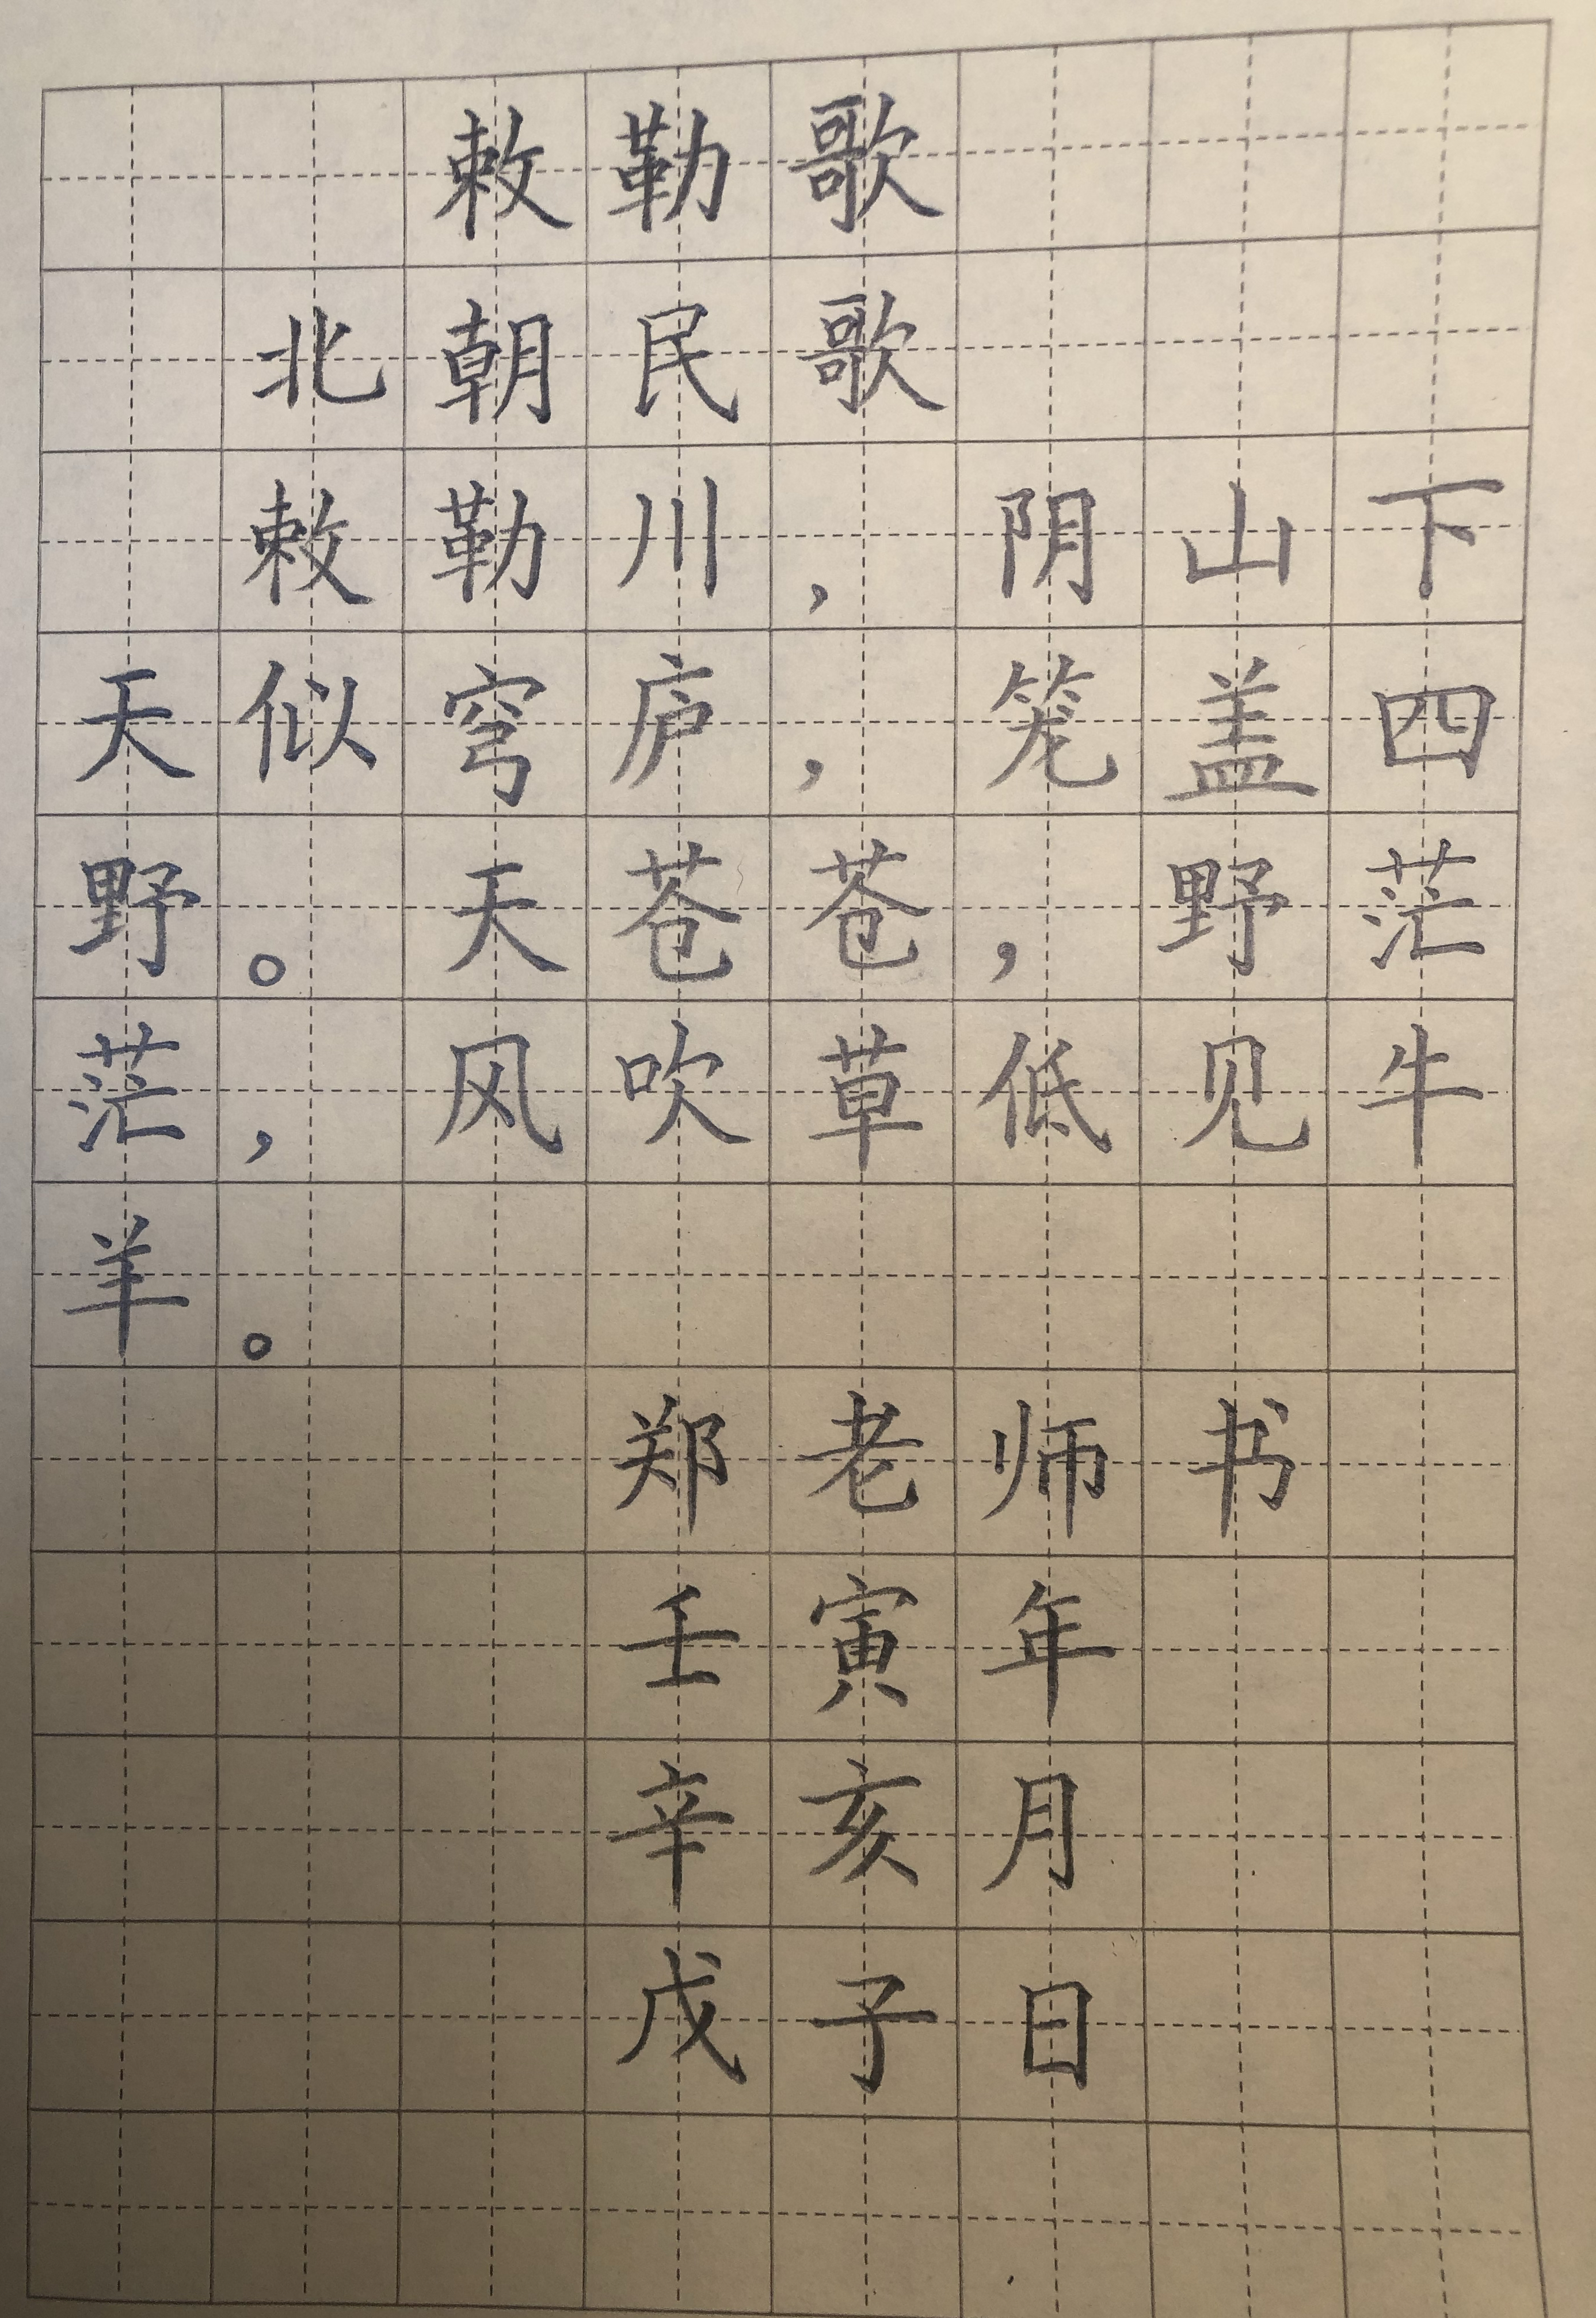 敕勒歌
北朝民歌
敕勒川，阴山下
天似穹庐，笼盖四
野。天苍苍，野茫
茫，风吹草低见牛
羊。
郑老师书
壬寅年
辛亥月
戊子日